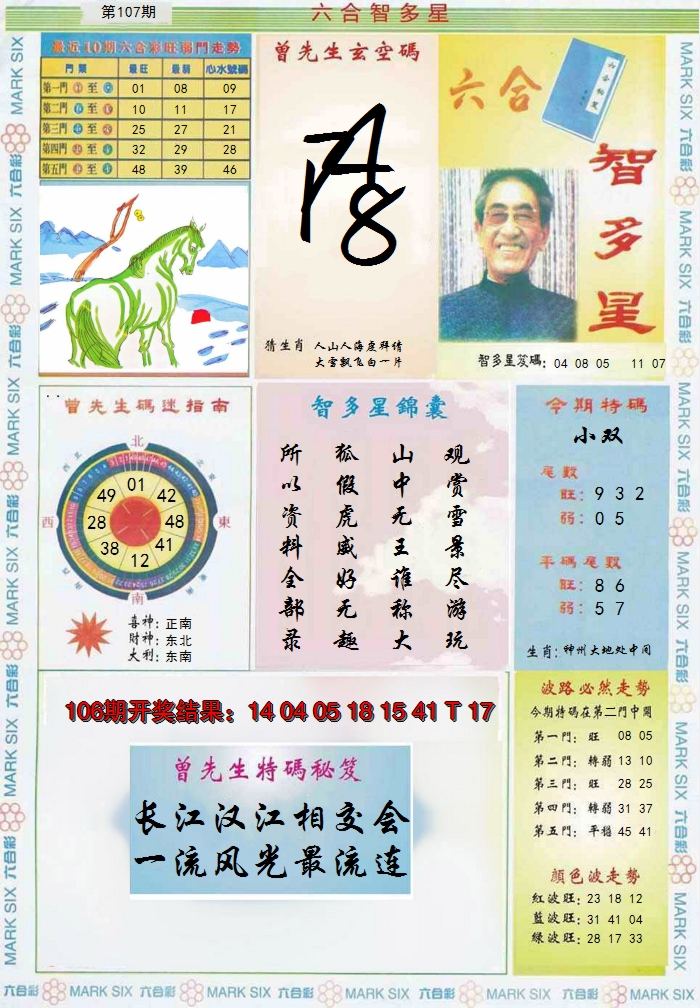 第107期
六合智多星
最近10期六合彩旺弱門走勢
門類 最旺 最弱 心水號碼
第一門 至 01 08 09
第二門 至 10 11 17
第三門 至 25 27 21
第四門 至 32 29 28
第五門 至 48 39 46
曾先生玄空碼
猜生肖 人山人海度拜倩
大雪飘飞白一片
六合
智多星
智多星笈碼: 04 08 05 11 07
曾先生碼迷指南
北
西
東
南
01
42
48
41
12
38
28
49
喜神: 正南
財神: 东北
大利: 东南
智多星錦囊
观赏雪景尽游玩
山中无王谁称大
狐假虎威好无趣
所以资料全部录
今期特碼
小双
尾數
旺: 9 3 2
弱: 0 5
平碼尾數
旺: 8 6
弱: 5 7
生肖: 神州大地处中间
106期开奖结果: 14 04 05 18 15 41 T 17
曾先生特碼秘笈
长江汉江相交会
一流风光最流连
波路必然走勢
今期特碼在第二門中開
第一門: 旺 08 05
第二門: 轉弱 13 10
第三門: 旺 28 25
第四門: 轉弱 31 37
第五門: 平穩 45 41
顏色波走勢
紅波旺: 23 18 12
藍波旺: 31 41 04
綠波旺: 28 17 33
六合彩 MARK SIX